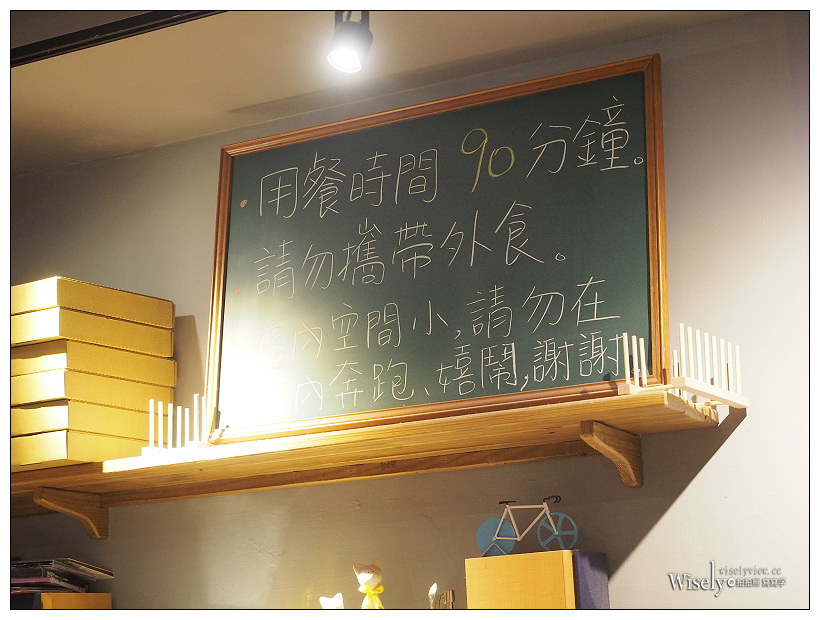 用餐時間 90 分鐘。
請勿攜帶外食。
店內空間小,請勿在
內奔跑、嬉鬧,謝謝
wiselyview.cc
Wisely